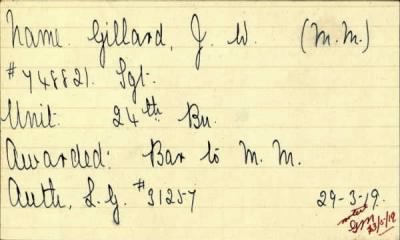 Name. Gillard, J. W. (M.M.)
# 748821. Sgt.
Unit. 24th Bn.
Awarded: Bar to M. M.
Auth, L.G. # 31257 29-3-19.
23/5/19